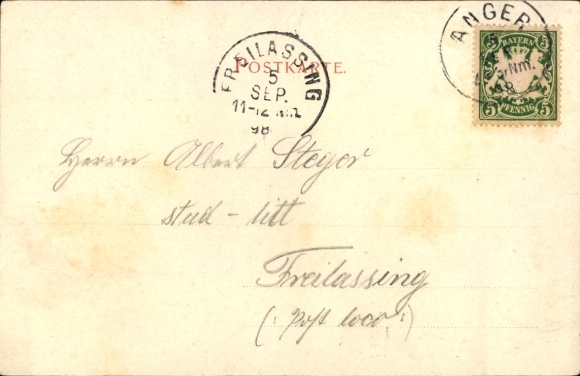 ANGER
5
Nm.
8
BAYERN
5 5
5 PFENNIG 5
FREILASSING
POSTKARTE.
5
SEP.
11-12
98
Herrn Albert Steger
stud - litt
Freilassing
(: post loco :)